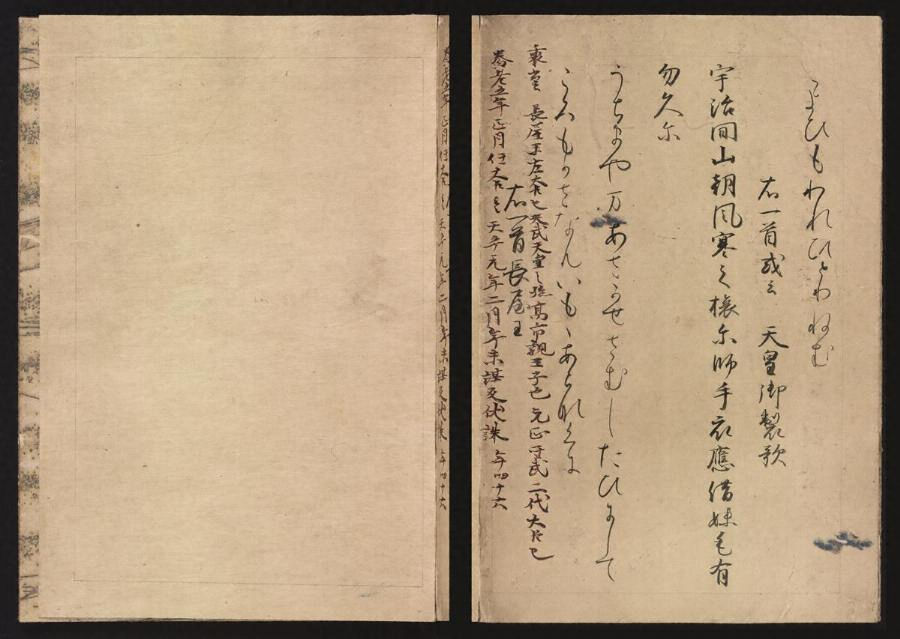 こよひもわれひとりねむ
右一首或云　天皇御製歌
宇治間山朝風寒之旅尓師手衣應借妹毛有
勿久尓
うちまや万あさかせさむしたひにして
ころもかさなんいもゝあらなくに
右一首長屋王
裏書　長屋王左大臣也天武天皇之孫高市親王子也　元正聖武二代大臣也
養老五年正月任右大臣天平元年二月 謀反伏誅　年四十六